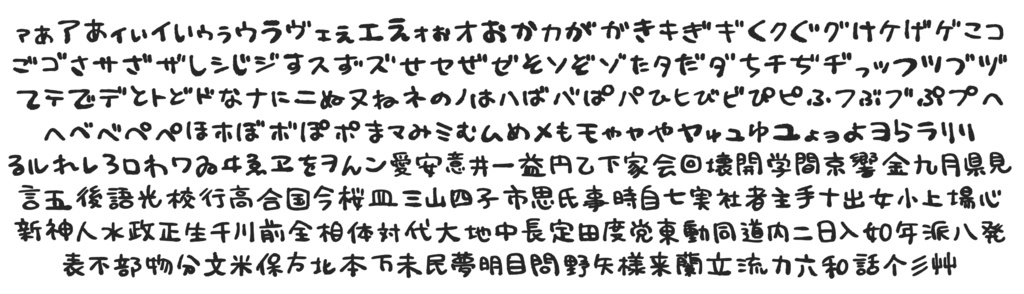 ァぁアあィぃイいゥぅウうヴェぇエえォぉオおかカがガきキぎギくクぐグけケげゲこコ
ごゴさサざザしシじジすスずズせセぜゼそソぞゾたタだダちチぢヂっッつツづヅ
てテでデとトどドなナにニぬヌねネのノはハばバぱパひヒびビぴピふフぶブぷプへ
ヘべベぺペほホぼボぽポまマみミむムめメもモゃャやヤゅュゆユょョよヨらラりリ
るルれレろロわワゐヰゑヱをヲんン愛安意井一益円乙下家会回壊開学間京響金九月県見
言五後語光校行高合国今桜皿三山四子市思氏事時自七実社者主手十出女小上場心
新神人水政正生千川前全相体対代大地中長定田度党東動同道内二日入如年派八発
表不部物分文米保方北本万未民夢明目問野矢様来蘭立流力六和話个彡艸